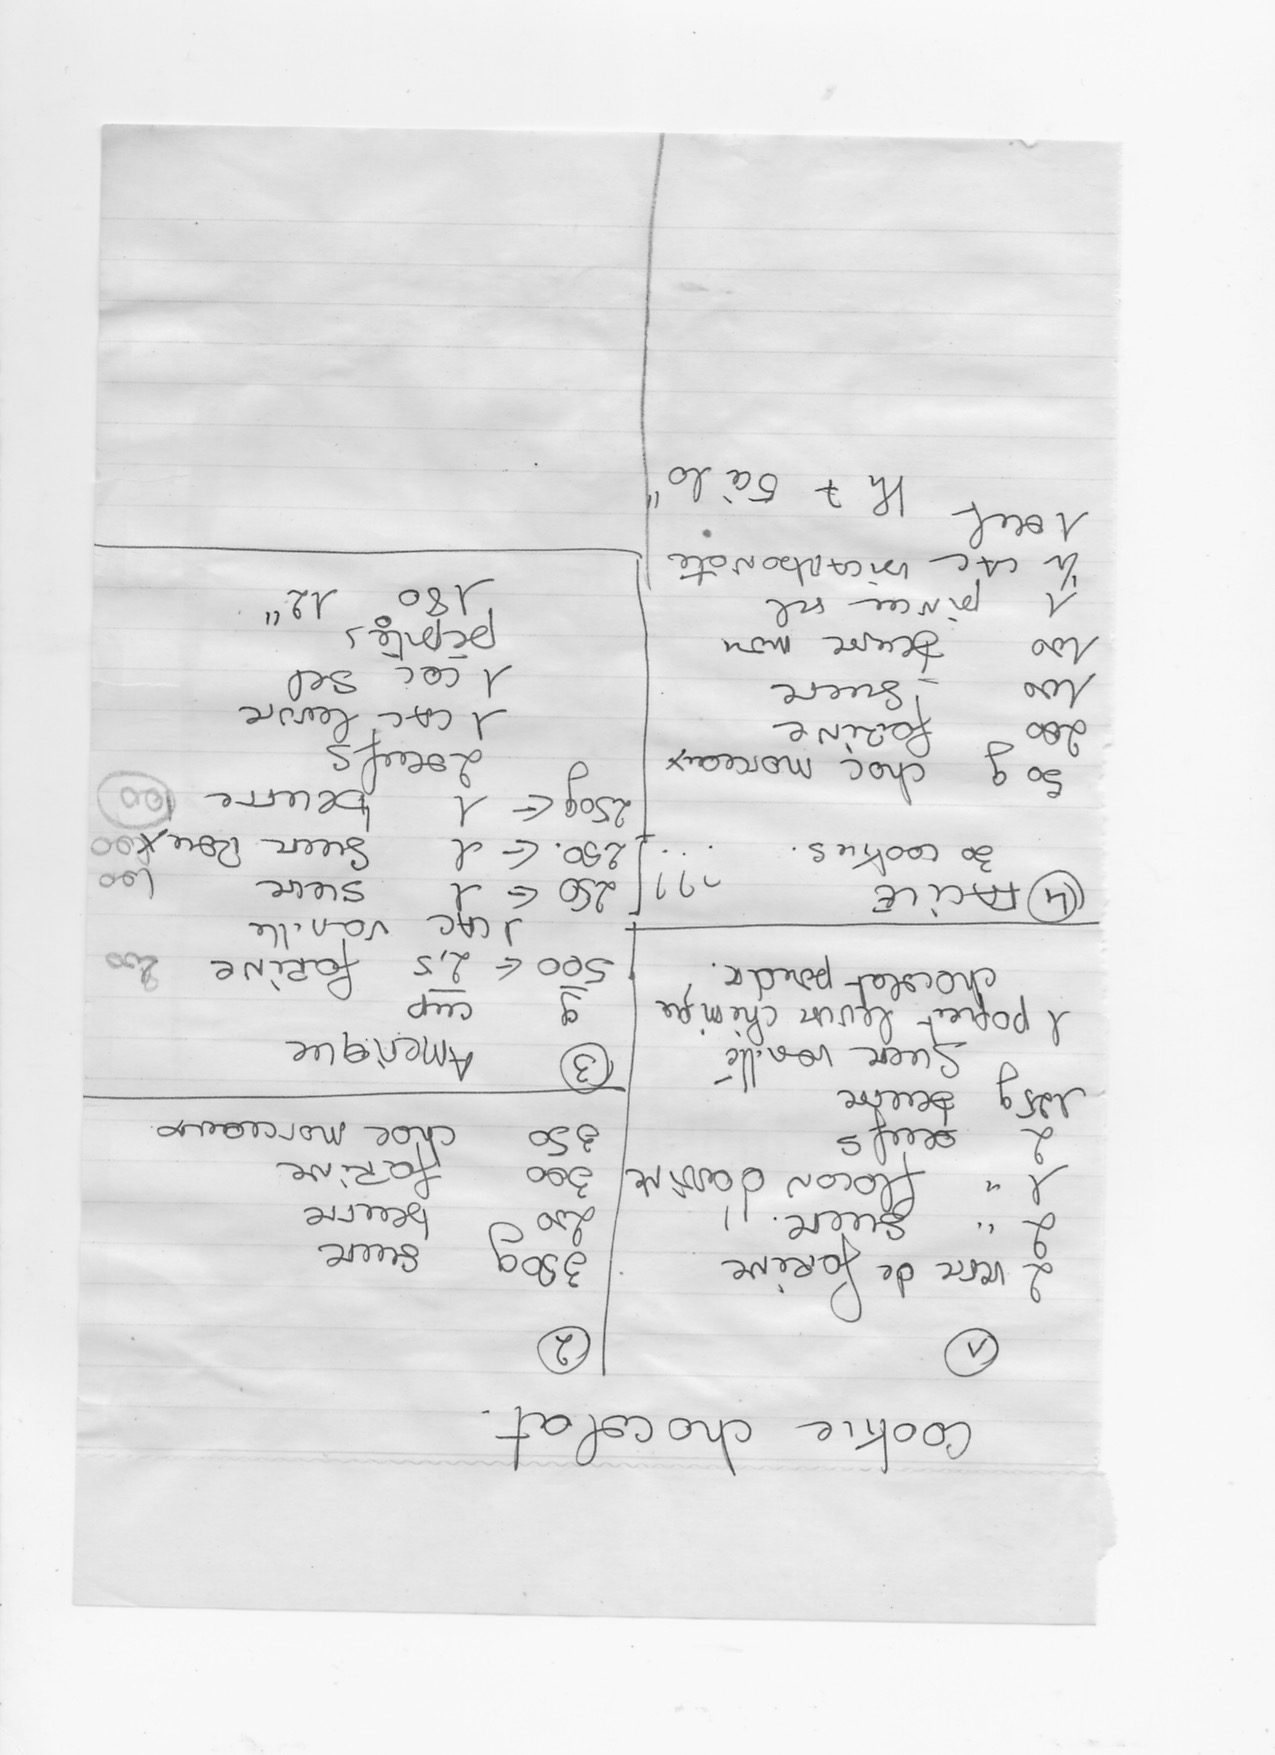 cookie chocolat.
1
2 verre de farine
2 " sucre.
1 " flocon d'avoine
2 oeufs
125g beurre
sucre vanillé
1 paquet levure chimique
chocolat poudre.
2
350g sucre
200 beurre
300 farine
350 choc morceaux
3 Amerique
g cup
500 ← 2,5 farine 200
1 CAC vanille
250 ← 1 sucre 100
250. ← 1 sucre Roux 100
250g ← 1 beurre 100
2 oeufs
1 CAC levure
1 cac sel
pépites
180 12"
4 FACILE ???
30 cookies. ...
50 g choc morceaux
200 farine
100 sucre
100 beurre mou
1 pincee sel
½ CAC bicarbonate
1 oeuf
th 7 5 à 10"